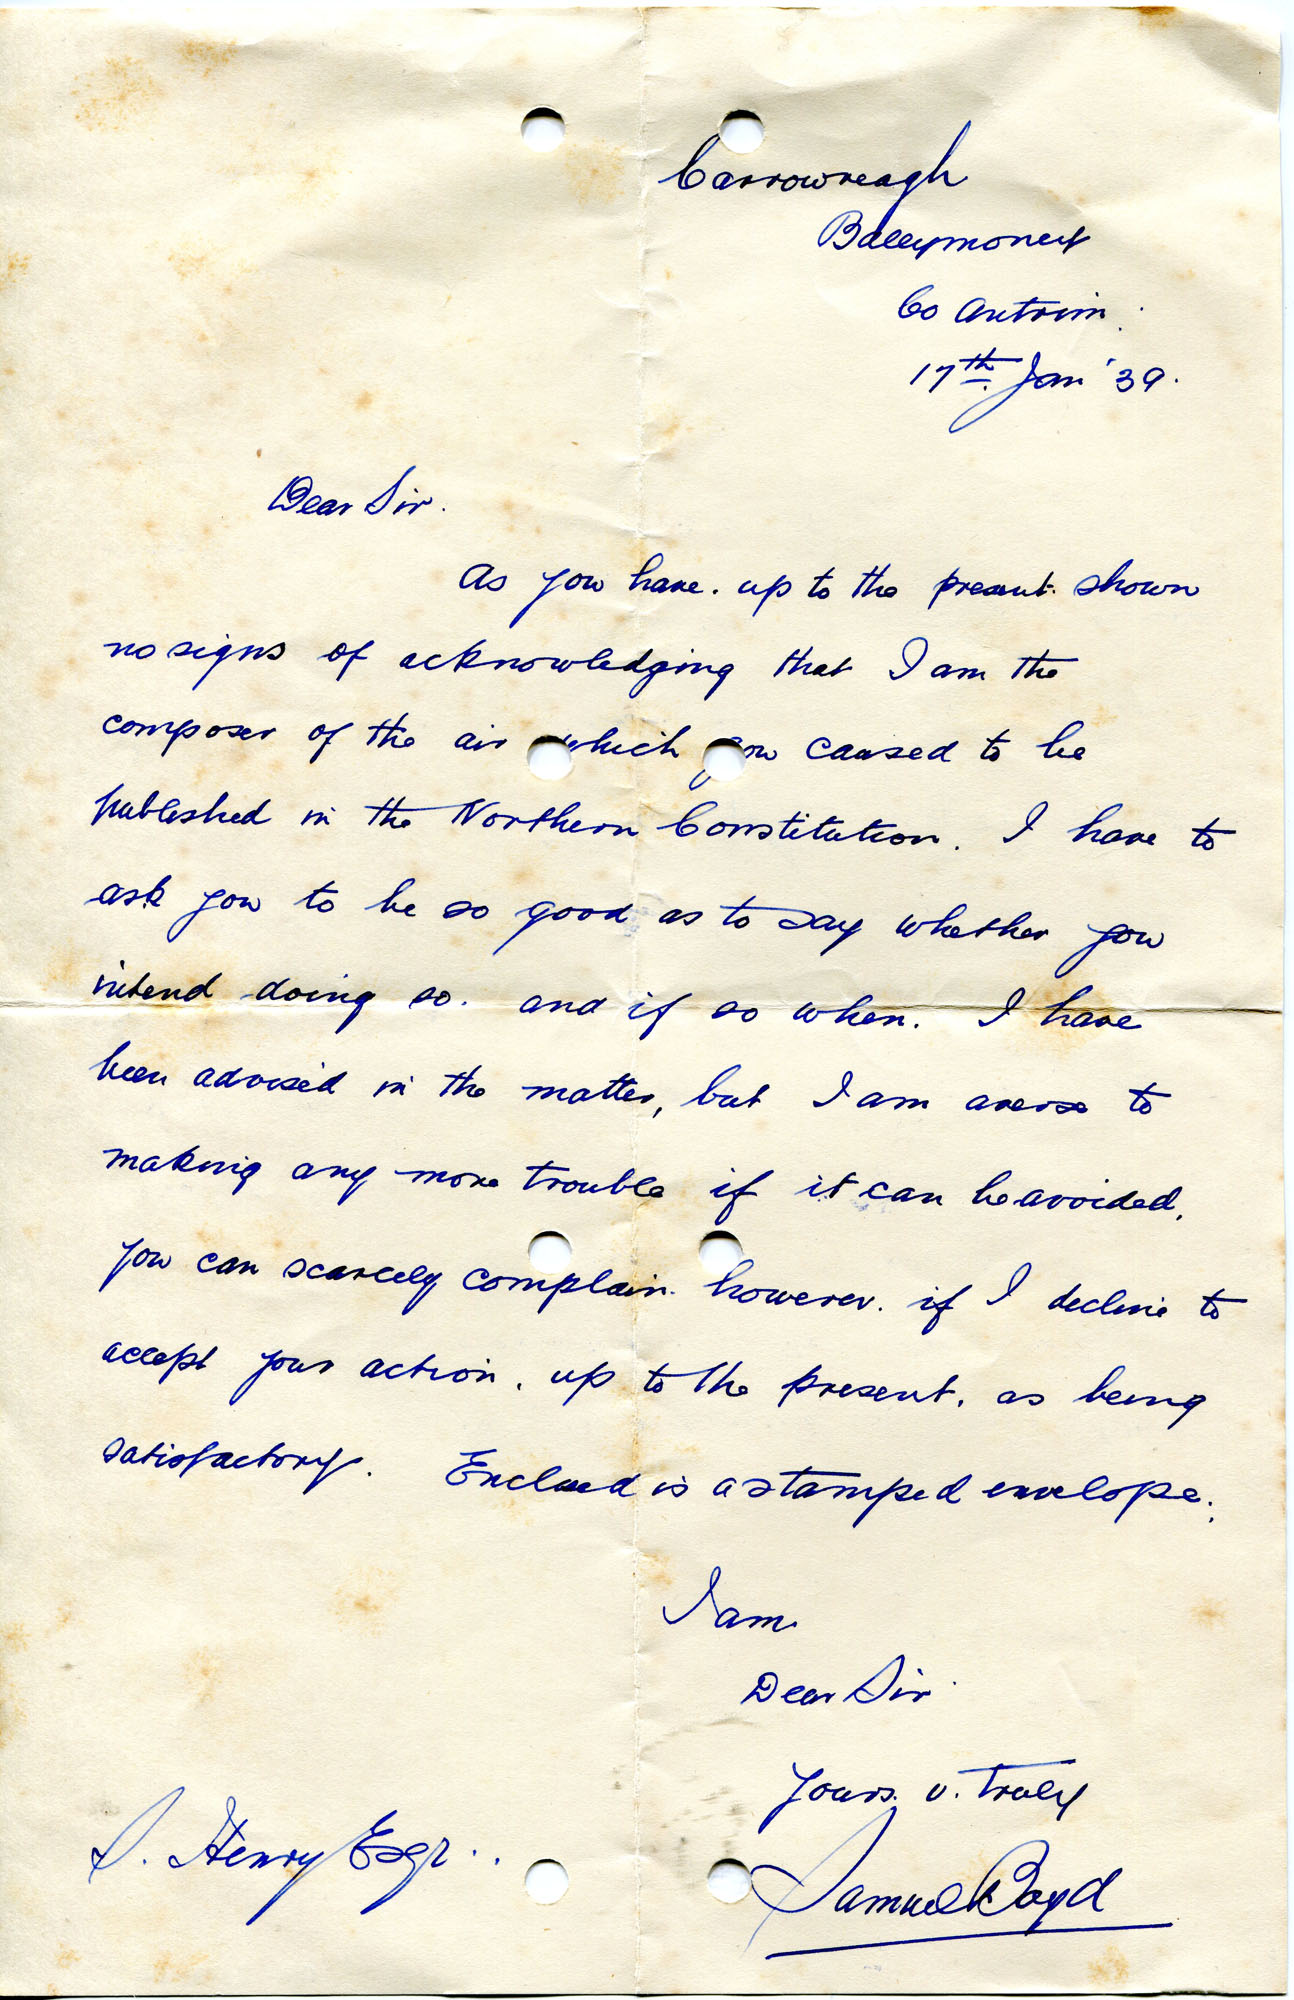 Carrowreagh
Ballymoney
Co Antrim.
17th Jan '39.
Dear Sir.
As you have. up to the present. shown
no signs of acknowledging that I am the
composer of the air which you caused to be
published in the Northern Constitution. I have to
ask you to be so good as to say whether you
intend doing so. and if so when. I have
been advised in the matter, but I am averse to
making any more trouble if it can be avoided.
You can scarcely complain. however. if I decline to
accept your action. up to the present. as being
satisfactory. Enclosed is a stamped envelope.
I am
Dear Sir.
Yours. v. truly
S. Henry Esqr..
Samuel Boyd